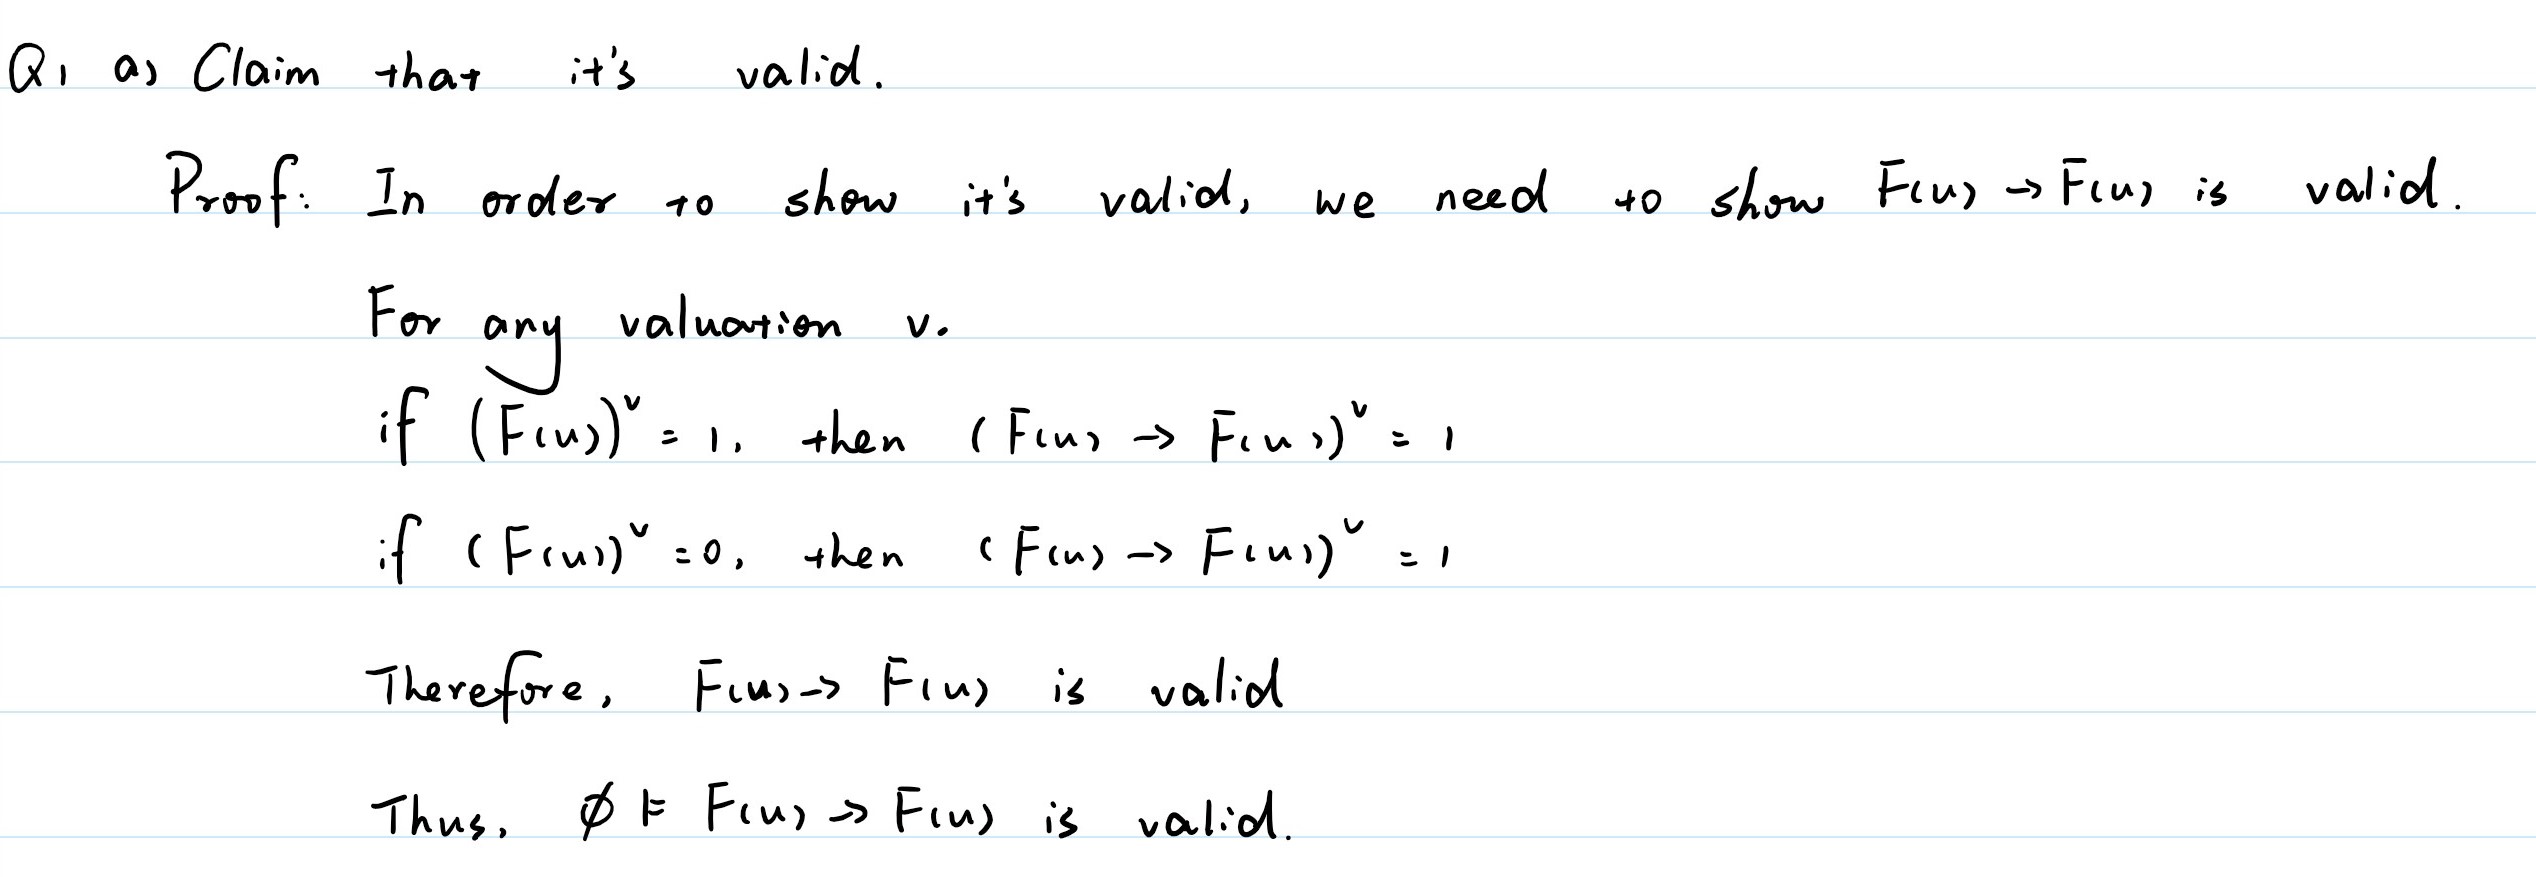 Q1 a) Claim that it's valid.
Proof: In order to show it's valid, we need to show F(u) → F(u) is valid.
For any valuation v.
if (F(u))ᵛ = 1, then (F(u) → F(u))ᵛ = 1
if (F(u))ᵛ = 0, then (F(u) → F(u))ᵛ = 1
Therefore, F(u) → F(u) is valid
Thus, ∅ ⊨ F(u) → F(u) is valid.